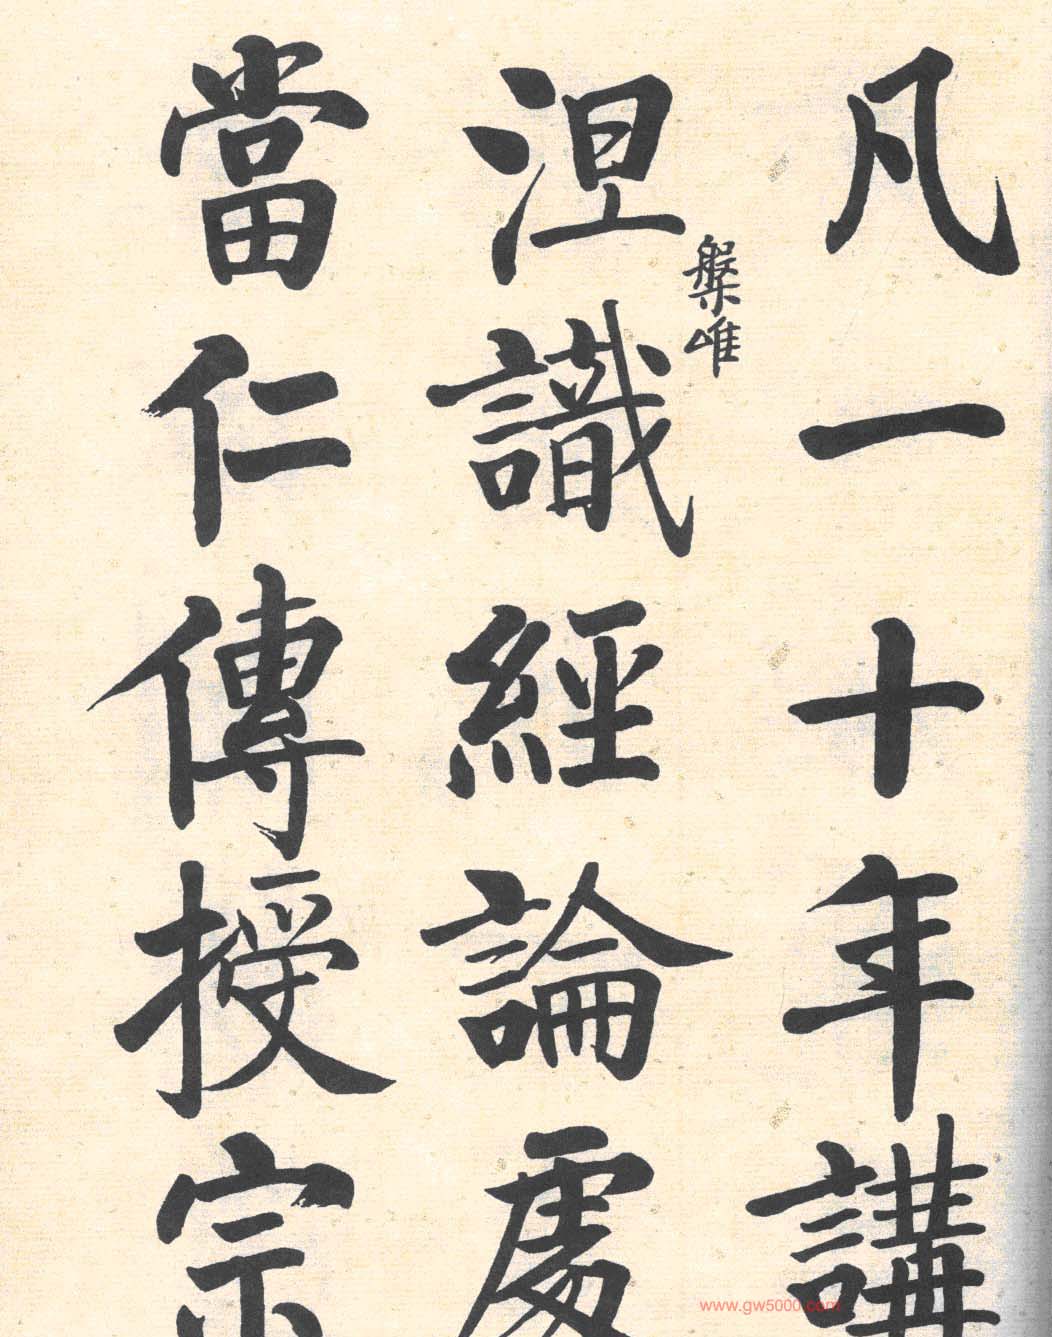 凡一十年講
涅槃唯識經論處
當仁傳授宗
www.gw5000.com